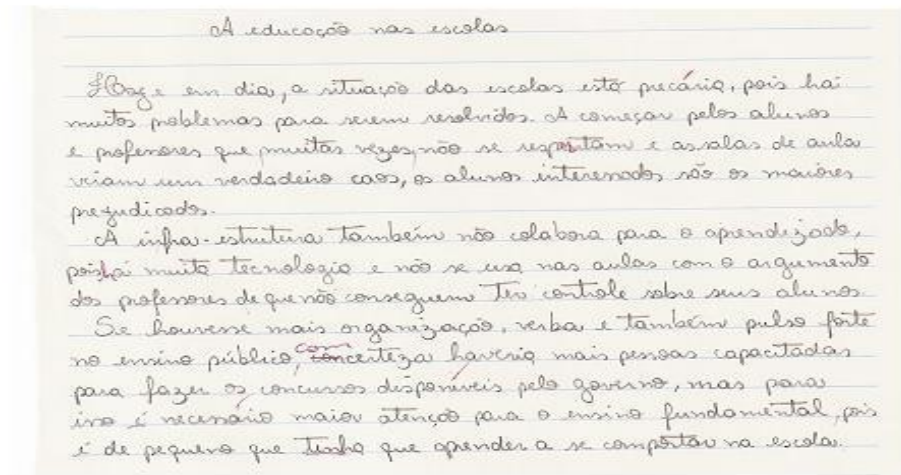 A educação nas escolas
Hoje em dia, a situação das escolas está precária, pois há
muitos problemas para serem resolvidos. A começar pelos alunos
e professores que muitas vezes, não se respeitam e as salas de aula
viram um verdadeiro caos, os alunos interessados são os maiores
prejudicados.
A infra-estrutura também não colabora para o aprendizado,
pois há muita tecnologia e não se usa nas aulas com o argumento
dos professores de que não conseguem ter controle sobre seus alunos.
Se houvesse mais organização, verba e também pulso forte
no ensino público, com certeza haveria mais pessoas capacitadas
para fazer os concursos disponíveis pelo governo, mas para
isso é necessário maior atenção para o ensino fundamental, pois
é de pequeno que tinha que aprender a se comportar na escola.